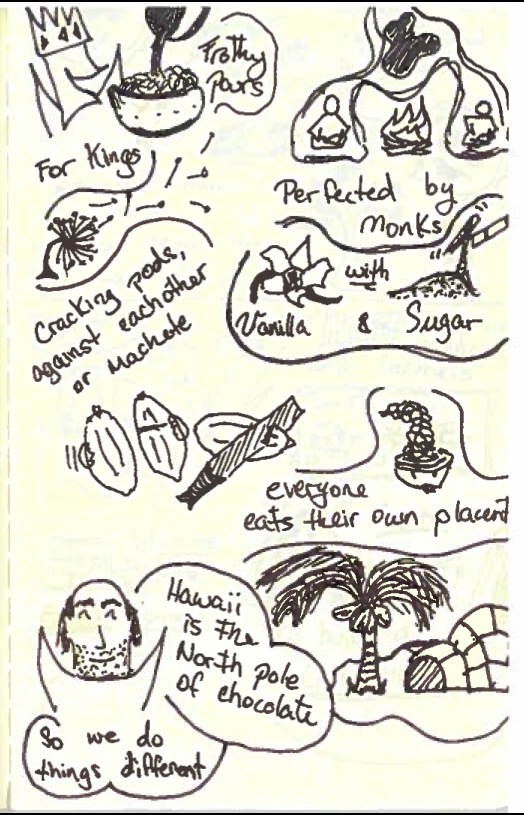 Frothy
Pours
For Kings
Perfected by
Monks
with
Vanilla & Sugar
Cracking pods,
against eachother
or Machete
everyone
eats their own placent
Hawaii
is the
North pole
of chocolate
So we do
things different